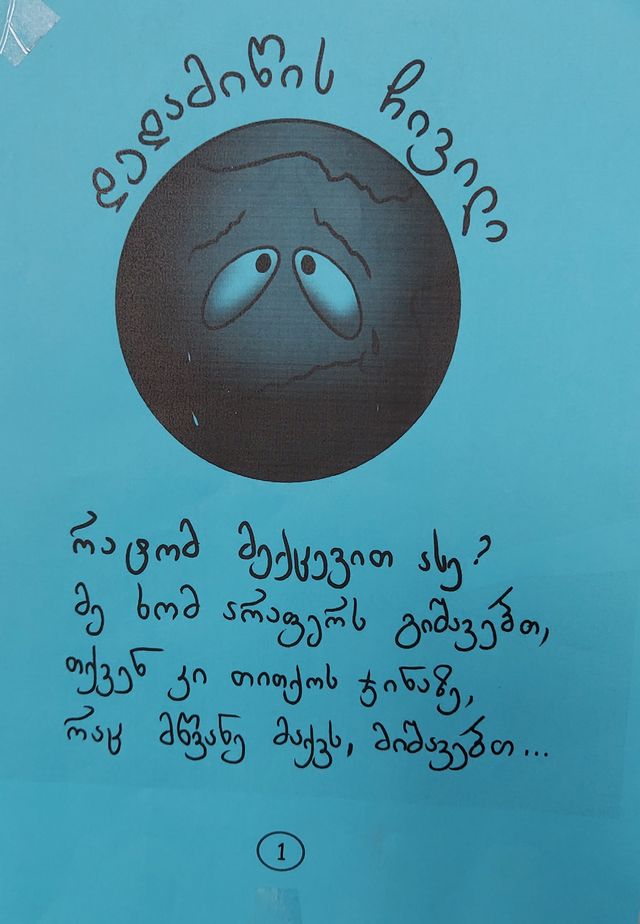 დედამიწის ჩივილი
რატომ მექცევით ასე?
მე ხომ არაფერს გიშავებთ,
თქვენ კი თითქოს ჯინაზე,
რაც მწვანე მაქვს, მიშავებთ...
1